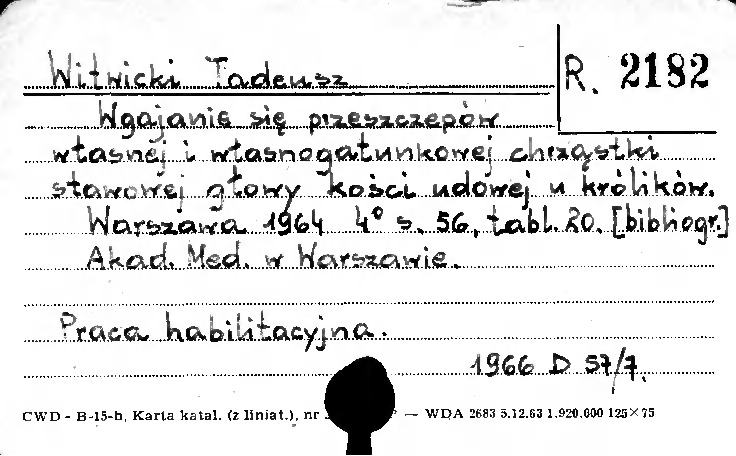 Witwicki Tadeusz
R. 2182
Wgajanie się przeszczepów
własnej i własnogatunkowej chrząstki
stawowej głowy kości udowej u królików.
Warszawa 1964 4° s. 56, tabl. 20. [bibliogr.]
Akad. Med. w Warszawie.
Praca habilitacyjna.
1966 D 57/7.
CWD - B-15-b, Karta katal. (z liniat.), nr — WDA 2683 5.12.63 1.920.000 125×75